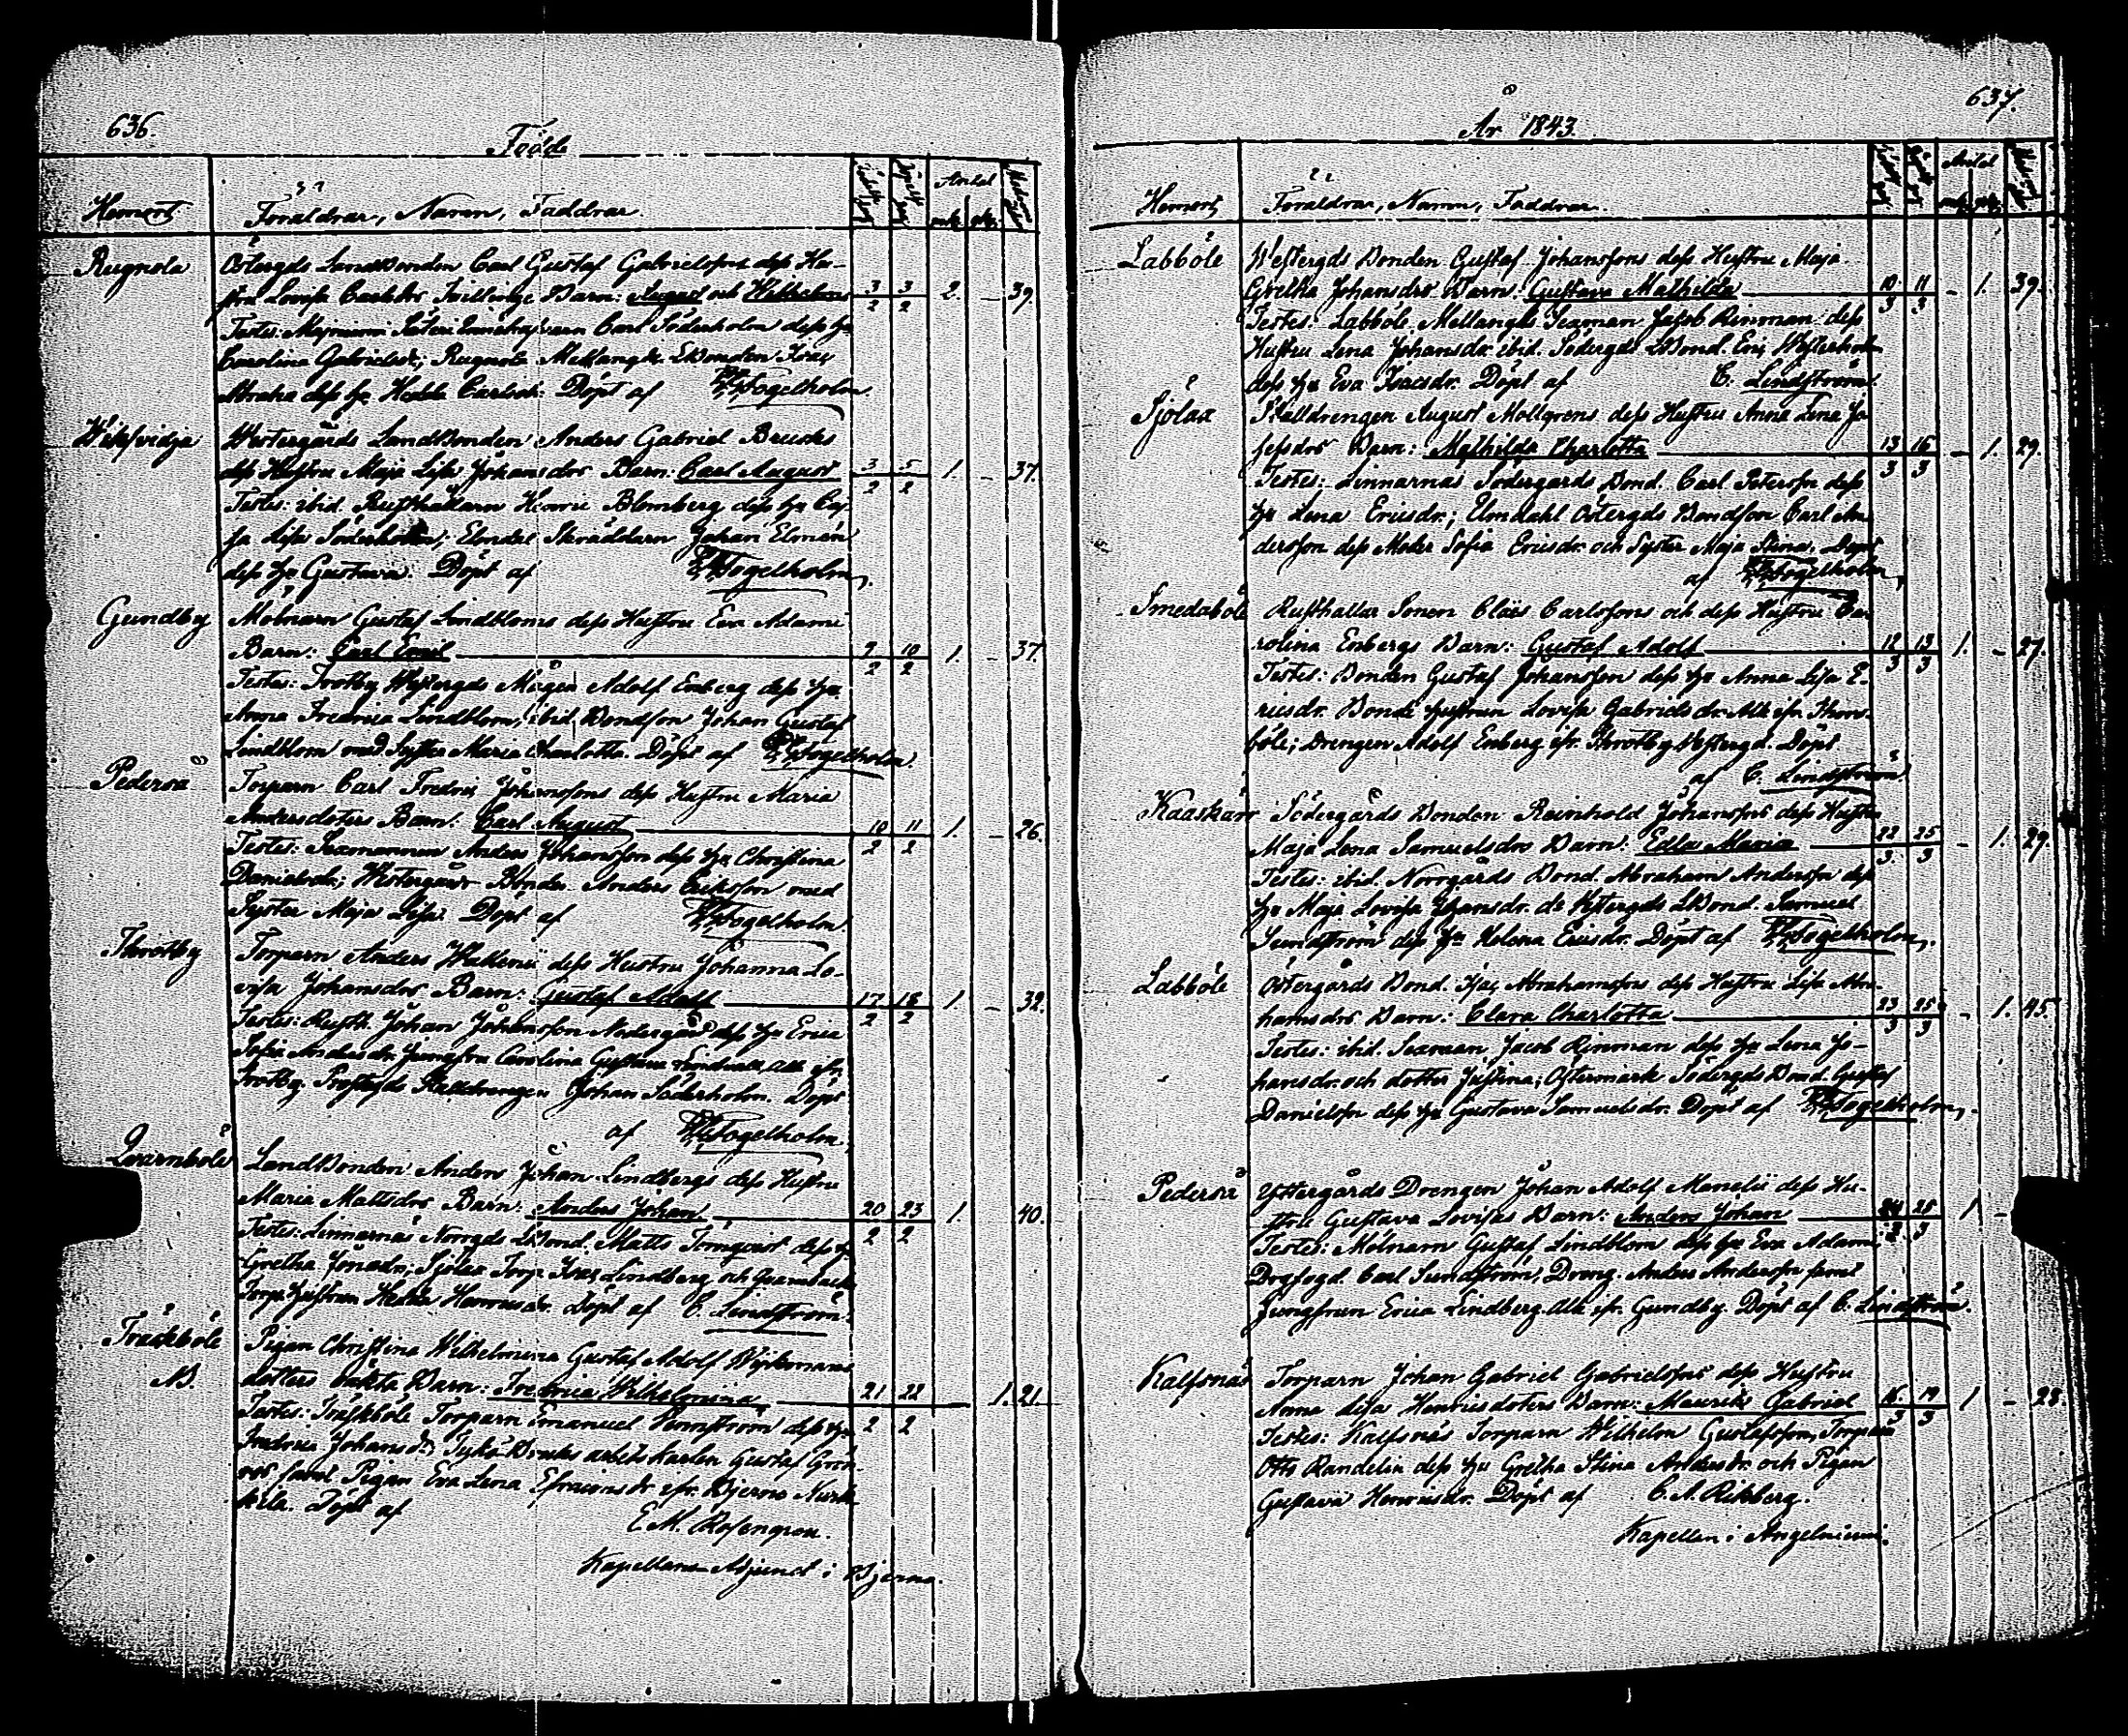 636.
Födde
Hemort
Föräldrar, Namn, Faddrar.
Födelse dag
Döpelse dag
Antal
mk. qk.
Rugnola
Östergds Landbonden Carl Gustaf Gabrielssons dess Hu-
stru Lovisa Carlsdrs Tvillinge Barn: August och Wilhelm 3/2 3/2 2. - 39.
Testes: Säteri Carl Söderholm dess hu
Carolina Gabrielsdr; Rugnola Mellangds LBonden Isac
dess hu Hedda Carlsdr: Döpt af Fogelholm.
Westergårds Landbonden Anders Gabriel
dess Hustru Maja Lisa Johansdrs Barn: Carl August 3/2 5/2 1. - 37.
Testes: ibid. Rusthållarn Henric Blomberg dess hu Caj-
sa Lisa Söderholm; Elmdal Skräddarn Johan Elmén
dess hu Gustava. Döpt af Fogelholm.
Gundby
Mölnarn Gustaf Lindbloms dess Hustru Eva Adami
Barn: Carl Emil 9/2 10/2 1. - 37.
Testes: Trotby Westergds Mågen Adolf Enberg dess hu
Anna Fredrica Lindblom, ibid. Bondson Johan Gustaf
Lindblom med Syster Maria Charlotta. Döpt af Fogelholm.
Pederså
Torparn Carl Fredric Johanssons dess Hustru Maria
Andersdoters Barn: Carl August 10/2 11/2 1. - 26.
Testes: Seamannen Anders Johansson dess hu Christina
Danielsdr; Westergårds Bonden Anders Eriksson med
Syster Maja Lisa. Döpt af Fogelholm.
Throtby
Torparn Anders dess Hustru Johanna Lo-
visa Johansdrs Barn: Gustaf Adolf 17/2 18/2 1. - 32.
Testes: Rusth. Johan Johansson Nedergård dess hu Erica
Sofia Andersdr. Jungfru Carolina Gustava Lindvall, alla ifr.
Trotby, Prestgds Stalldrengen Johan Söderholm. Döpt
af Fogelholm.
Qvarnböle
Landbonden Anders Johan Lindbergs dess Hustru
Maria Mattsdrs Barn: Anders Johan 20/2 23/2 1. 40.
Testes: Linnarnäs Norrgds LBond. Matts Törnqvist dess hu
Gretha Jönsdr; Sjölax Torp. Isac Lindberg och
Torp. Hustrun Hedda Henricsdr. Döpt af C. Lindström.
Träskböle
NB.
Pigan Christina Wilhelmina Gustaf Adolf
dotters oäkta Barn: Fredrica Wilhelmina 21/2 22/2 1. 21.
Testes: Träskböle Torparn Emanuel dess hu
Fredrica Johansdr; Tykö Bruks arbetskarlen Gustaf Grön-
roos samt Pigan Eva Lena Efraimsdr ifr. Bjerno
Döpt af
E. M. Rosengren.
Kapellans Adjunct i Bjerno.
637.
År 1843.
Hemort
Föräldrar, Namn, Faddrar.
Antal
mk. qk.
Labböle
Westergds Bonden Gustaf Johanssons dess Hustru Maja
Gretha Johansdrs Barn: Gustava Mathilda 10/3 11/3 - 1. 39.
Testes: Labböle Mellangds Seaman Jacob Renman dess
Hustru Lena Johansdr. ibid. Södergds LBond. Eric
dess hu Eva Isacsdr. Döpt af C. Lindström.
Sjölax
Stalldrengen August Mollgrens dess Hustru Anna Lena Jo-
sefsdrs Barn: Mathilda Charlotta 13/3 16/3 - 1. 29.
Testes: Linnarnäs Södergårds Bond. Carl Petersson dess
hu Lena Ericsdr.; Elmdahl Östergds Bondson Carl An-
dersson dess Moder Sofia Ericsdr. och Syster Maja Stina. Döpt
af Fogelholm.
Smedaböle
Rusthållar Sonen Claës Carlssons och dess Hustru Ca-
rolina Enbergs Barn: Gustaf Adolf 12/3 13/3 1. - 27.
Testes: Bonden Gustaf Johansson dess hu Anna Lisa E-
ricsdr. Bonde hustrun Lovisa Gabrielsdr. Alla ifr.
böle; Drengen Adolf Enberg ifr. Throtby Westergd. Döpt
af C. Lindström
Kaaskärr
Södergårds Bonden Reinhold Johanssons dess Hustru
Maja Lena Samuelsdrs Barn: Edla Maria 22/3 25/3 - 1. 29.
Testes: ibid. Norrgårds Bond. Abraham Andersson dess
hu Maja Lovisa Johansdr. LBond. Samuel
Sundström dess hu Helena Ericsdr. Döpt af Fogelholm.
Labböle
Östergårds Bond. Isac Abrahamssons dess Hustru Lisa Abra-
hamsdrs Barn: Clara Charlotta 23/3 25/3 - 1. 45.
Testes: ibid. Seaman Jacob Renman dess hu Lena Jo-
hansdr. och dotter Justina; Östermark Södergds Bond. Gustaf
Danielsson dess hu Gustava Samuelsdr. Döpt af Fogelholm.
Pederså
Yttergårds Drengen Johan Adolf Manelii dess Hu-
stru Gustava Lovisas Barn: Anders Johan 25/3 1 -
Testes: Mölnarn Gustaf Lindblom dess hu Eva Adami
Drgfogd. Carl Sundström, Dreng. Anders Andersson samt
Jungfrun Erica Lindberg alla ifr. Gundby. Döpt af C. Lindström.
Kalfsnäs
Torparn Johan Gabriel Gabrielssons dess Hustru
Anna Lisa Henricsdoters Barn: Maurits Gabriel 16/3 19/3 1 - 28.
Testes: Kalfsnäs Torparn Wilhelm Gustafsson, Torparn
Otto Randelin dess hu Gretha Stina Andersdr. och Pigan
Gustava Henricsdr. Döpt af C. A. Rikberg.
Kapellan i Angelniemi.